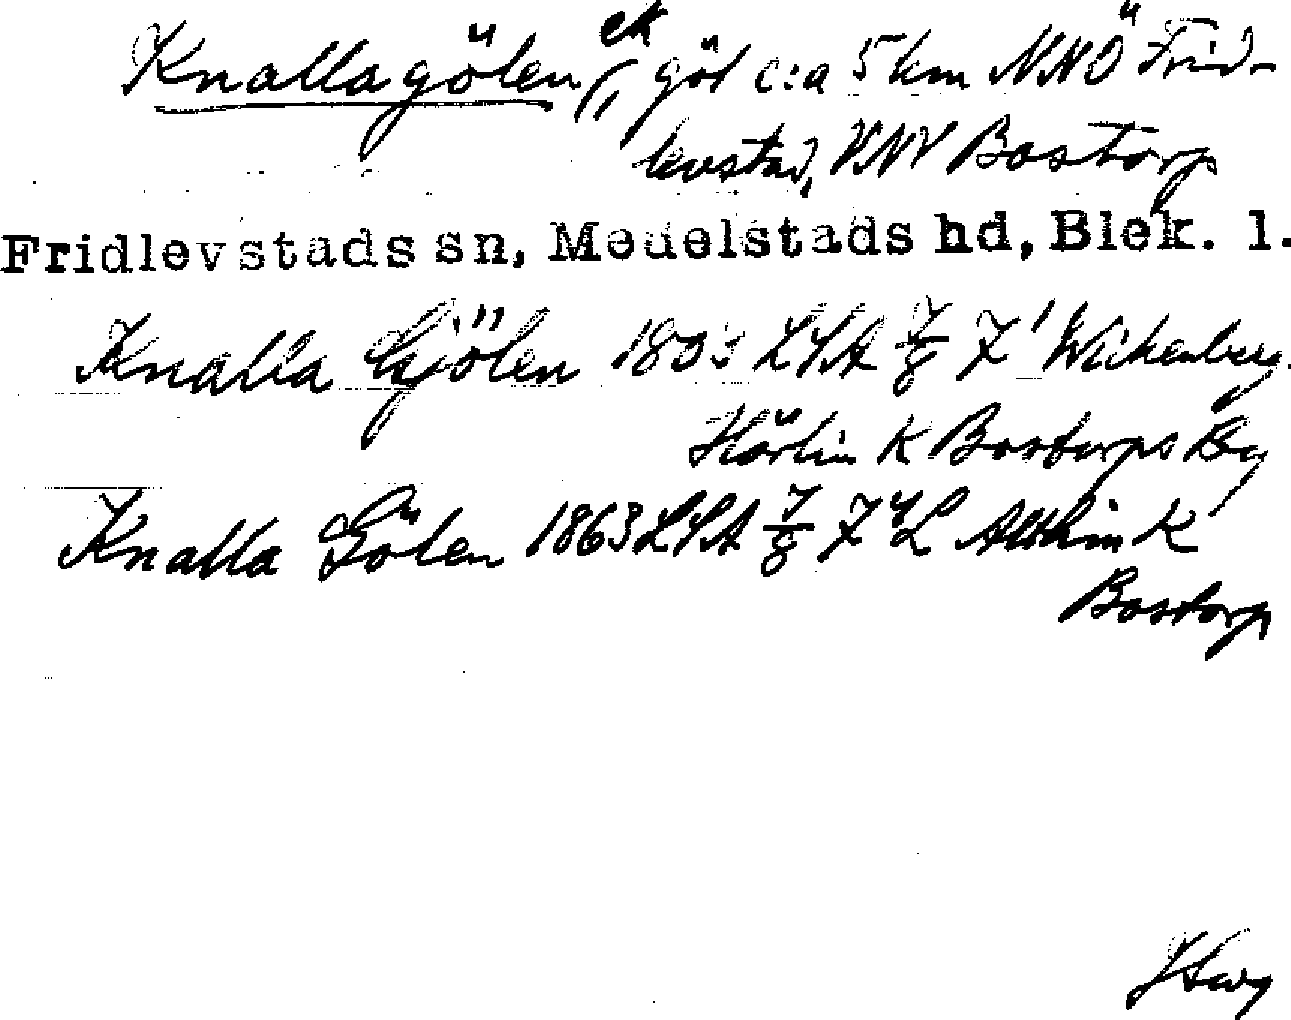 Knallagölen, ek göl c:a 5 km NNÖ Frid-
levstad, VNV Bostorp
Fridlevstads sn, Medelstads hd, Blek. l.
Knalla Gjölen 1803 LSA 7/8 Z' Wickenberg.
Hörlin K Bostorps By
Knalla Gölen 1863 LSA 7/8 Z L Althin K
Bostorp